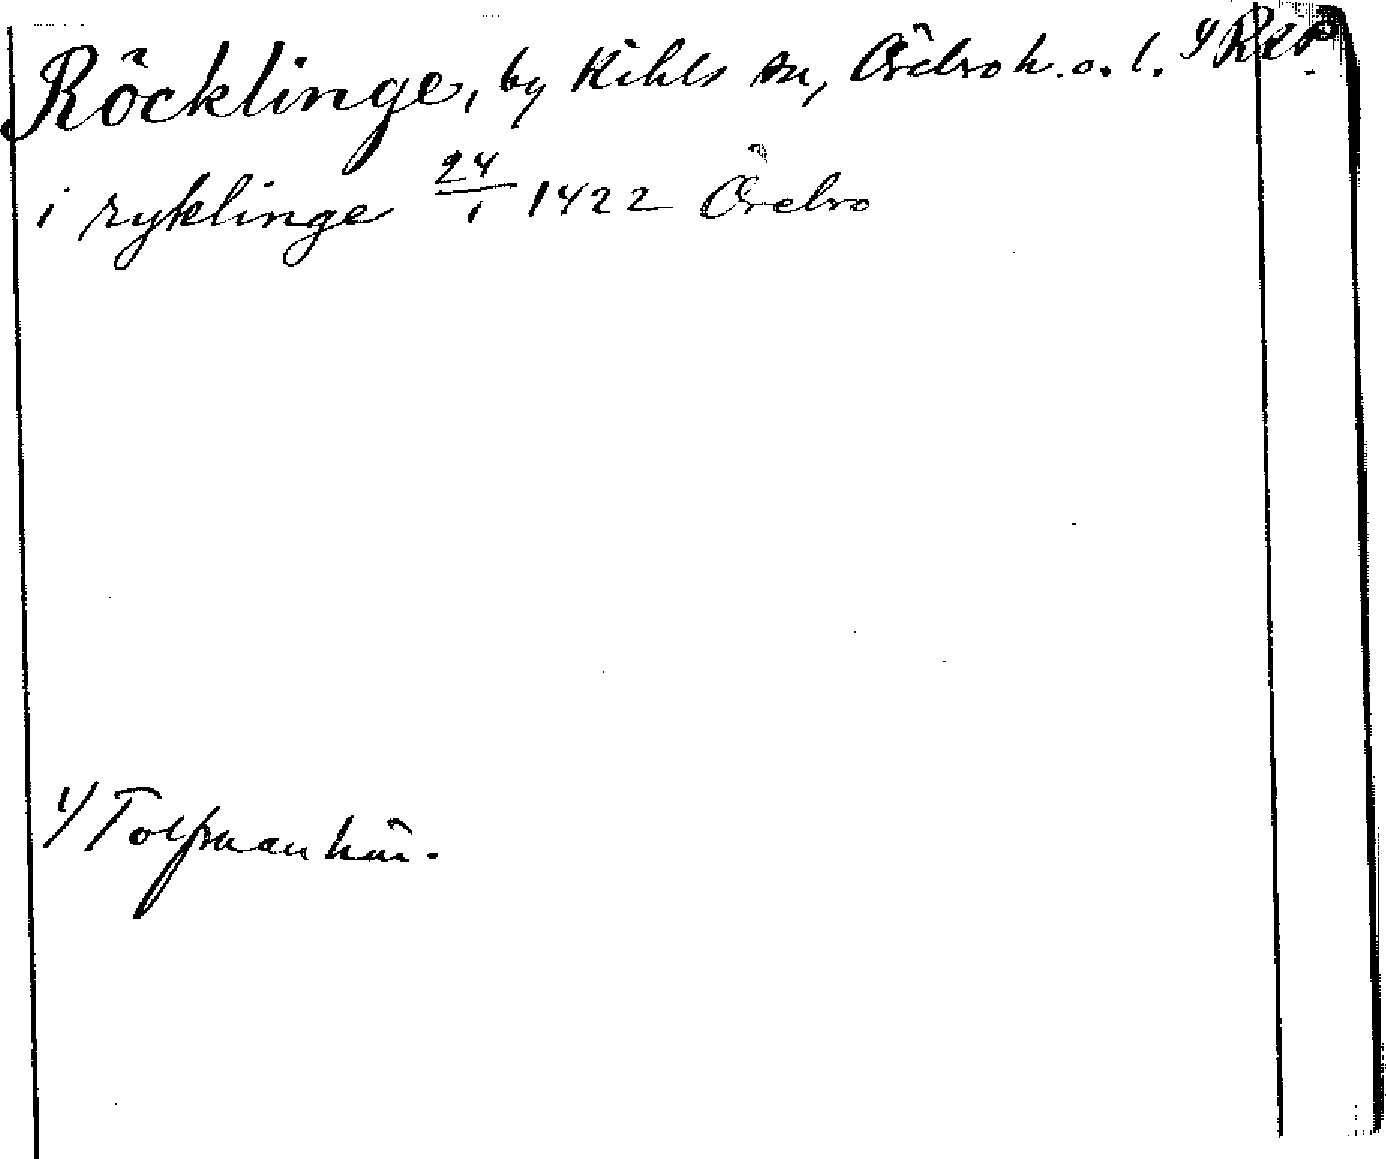 Röcklinge, by Kihls sn, Örebro h. o. l.
i ryklinge 24/1 1422 Örebro
1/ Tolfmanhäi.